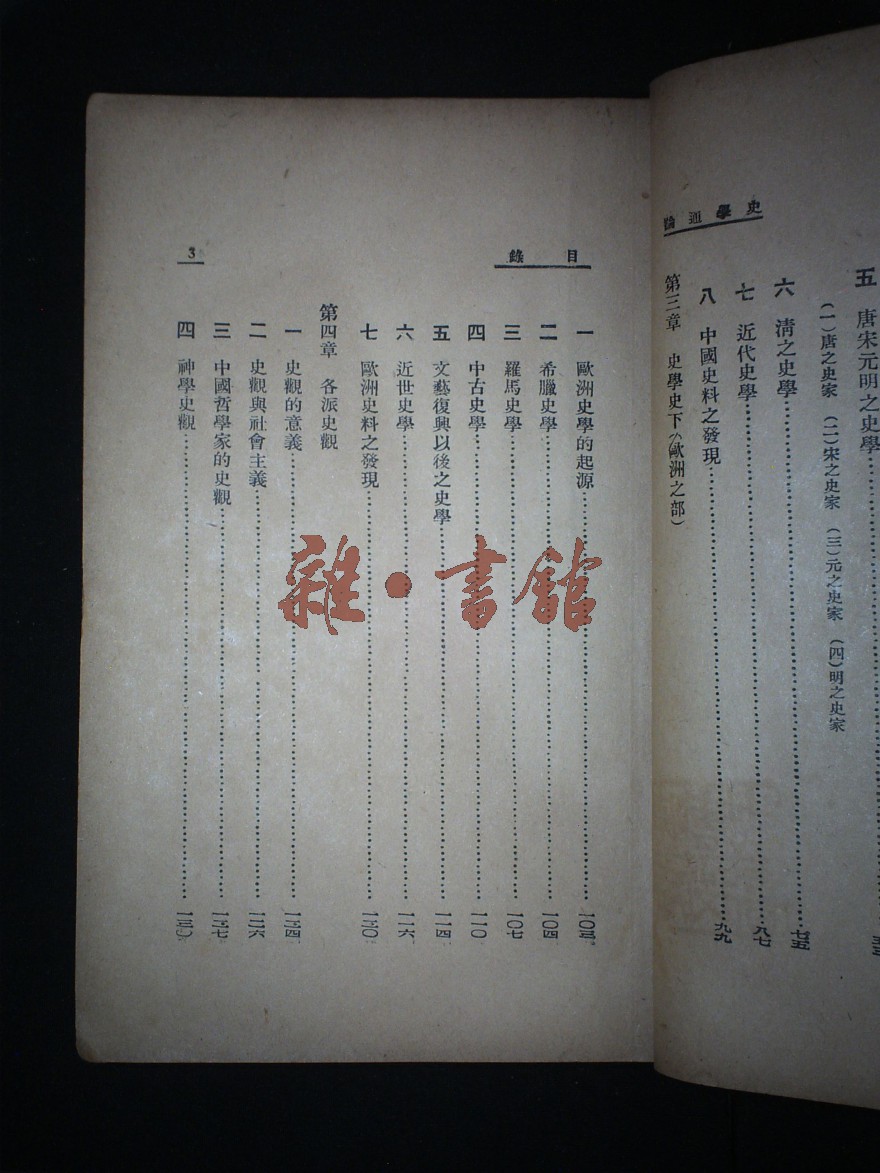 史學通論
五　唐宋元明之史學
(一)唐之史家　(二)宋之史家　(三)元之史家　(四)明之史家
六　清之史學……七五
七　近代史學……八七
八　中國史料之發現……九九
第三章　史學史下(歐洲之部)
目錄
3
一　歐洲史學的起源……一〇三
二　希臘史學……一〇四
三　羅馬史學……一〇七
四　中古史學……一一〇
五　文藝復興以後之史學……一一四
六　近世史學……一一六
七　歐洲史料之發現……一二〇
第四章　各派史觀
一　史觀的意義……一二四
二　史觀與社會主義……一二六
三　中國哲學家的史觀……一二七
四　神學史觀……一三〇
雜·書館